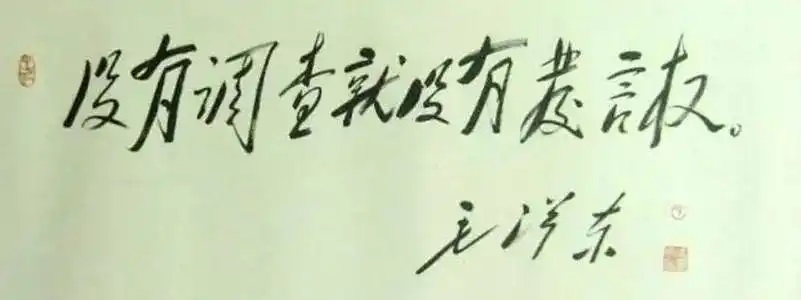 没有调查就没有发言权。
毛泽东